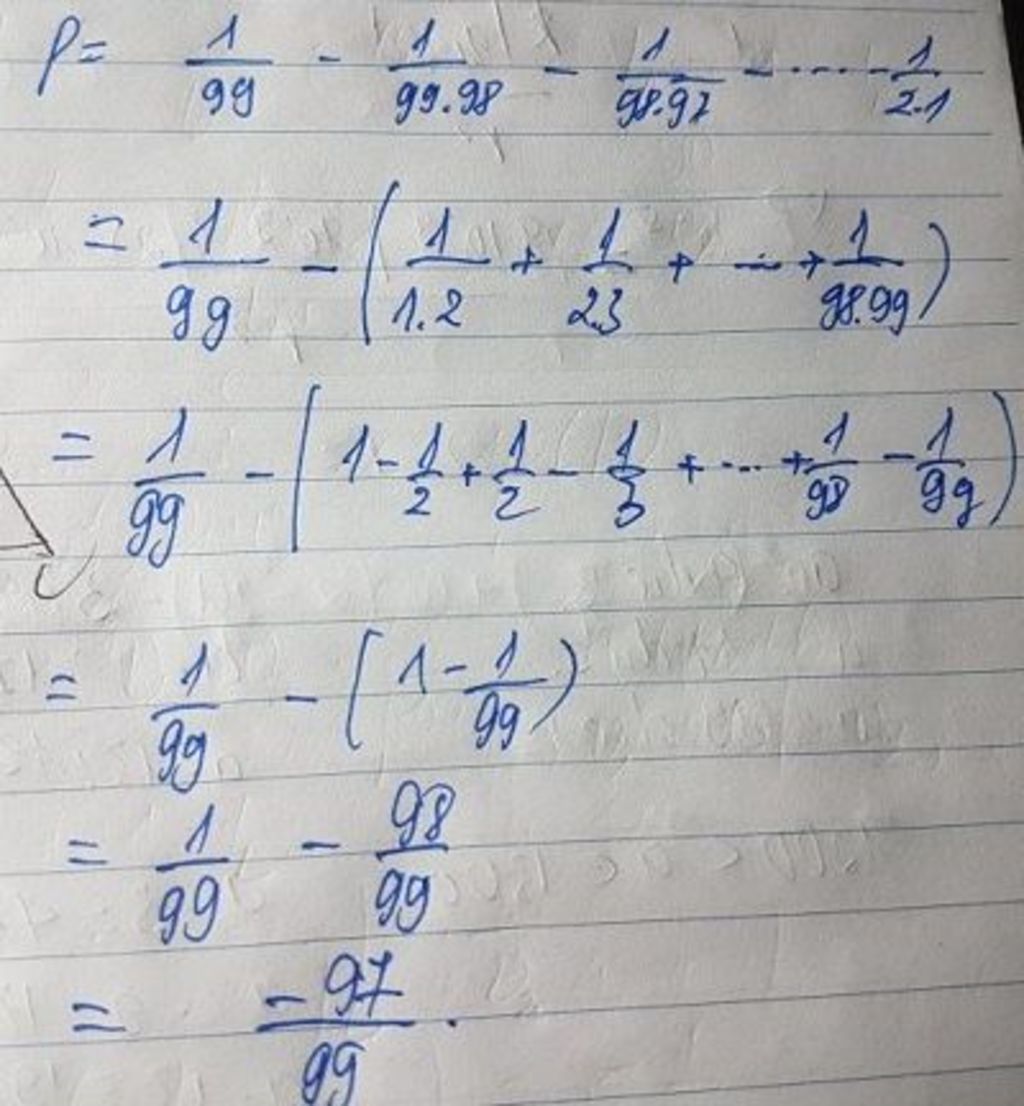 P = 1/99 - 1/99.98 - 1/98.97 - .... - 1/2.1
= 1/99 - ( 1/1.2 + 1/2.3 + ... + 1/98.99 )
= 1/99 - ( 1 - 1/2 + 1/2 - 1/3 + ... + 1/98 - 1/99 )
= 1/99 - ( 1 - 1/99 )
= 1/99 - 98/99
= -97/99 .